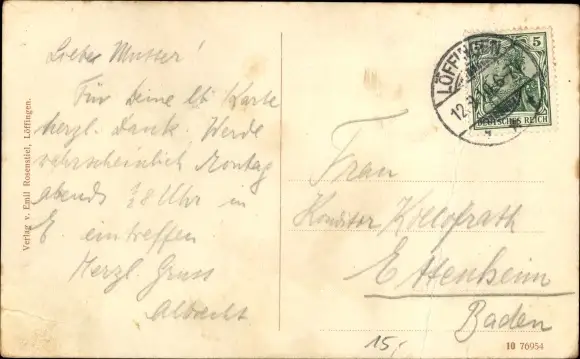 Lieber Mutter!
Für Deine lb. Karte
herzl. Dank. Werde
wahrscheinlich Montag
abends 1/28 Uhr in
E. eintreffen
Herzl. Gruss
Albrecht
Verlag v. Emil Rosenstiel, Löffingen.
LÖFFINGEN
5
DEUTSCHES REICH
Frau
Konditor Kollofrath
Ettenheim
Baden
15,-
10 76954